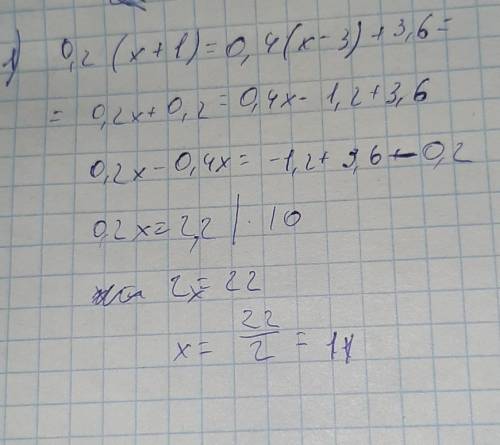 1) 0,2 (x+1) = 0,4(x-3)+3,6=
= 0,2x+0,2=0,4x-1,2+3,6
0,2x-0,4x= -1,2+3,6-0,2
0,2x=2,2 | · 10
2x= 22
x= 22/2 = 11